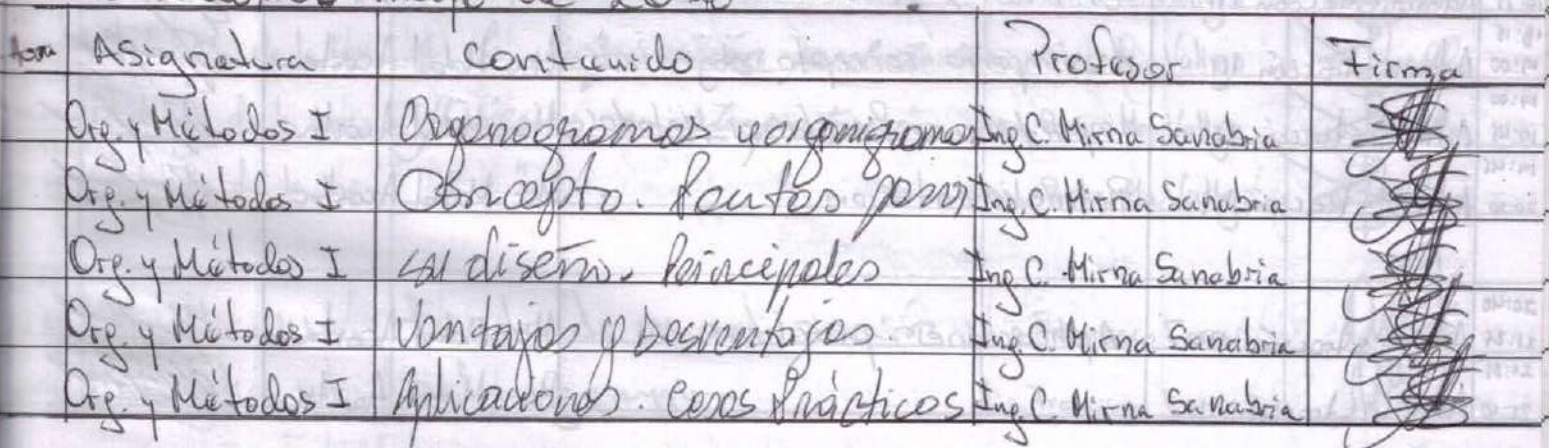 Hora Asignatura Contenido Profesor Firma
Org. y Métodos I Organogramas y organigramas Ing. C. Mirna Sanabria
Org. y Métodos I Concepto. Pautas para Ing. C. Mirna Sanabria
Org. y Métodos I su diseño. Principales Ing. C. Mirna Sanabria
Org. y Métodos I Ventajas y Desventajas. Ing. C. Mirna Sanabria
Org. y Métodos I Aplicaciones. Casos Prácticos Ing. C. Mirna Sanabria